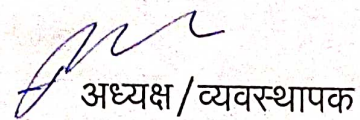 अध्यक्ष / व्यवस्थापक